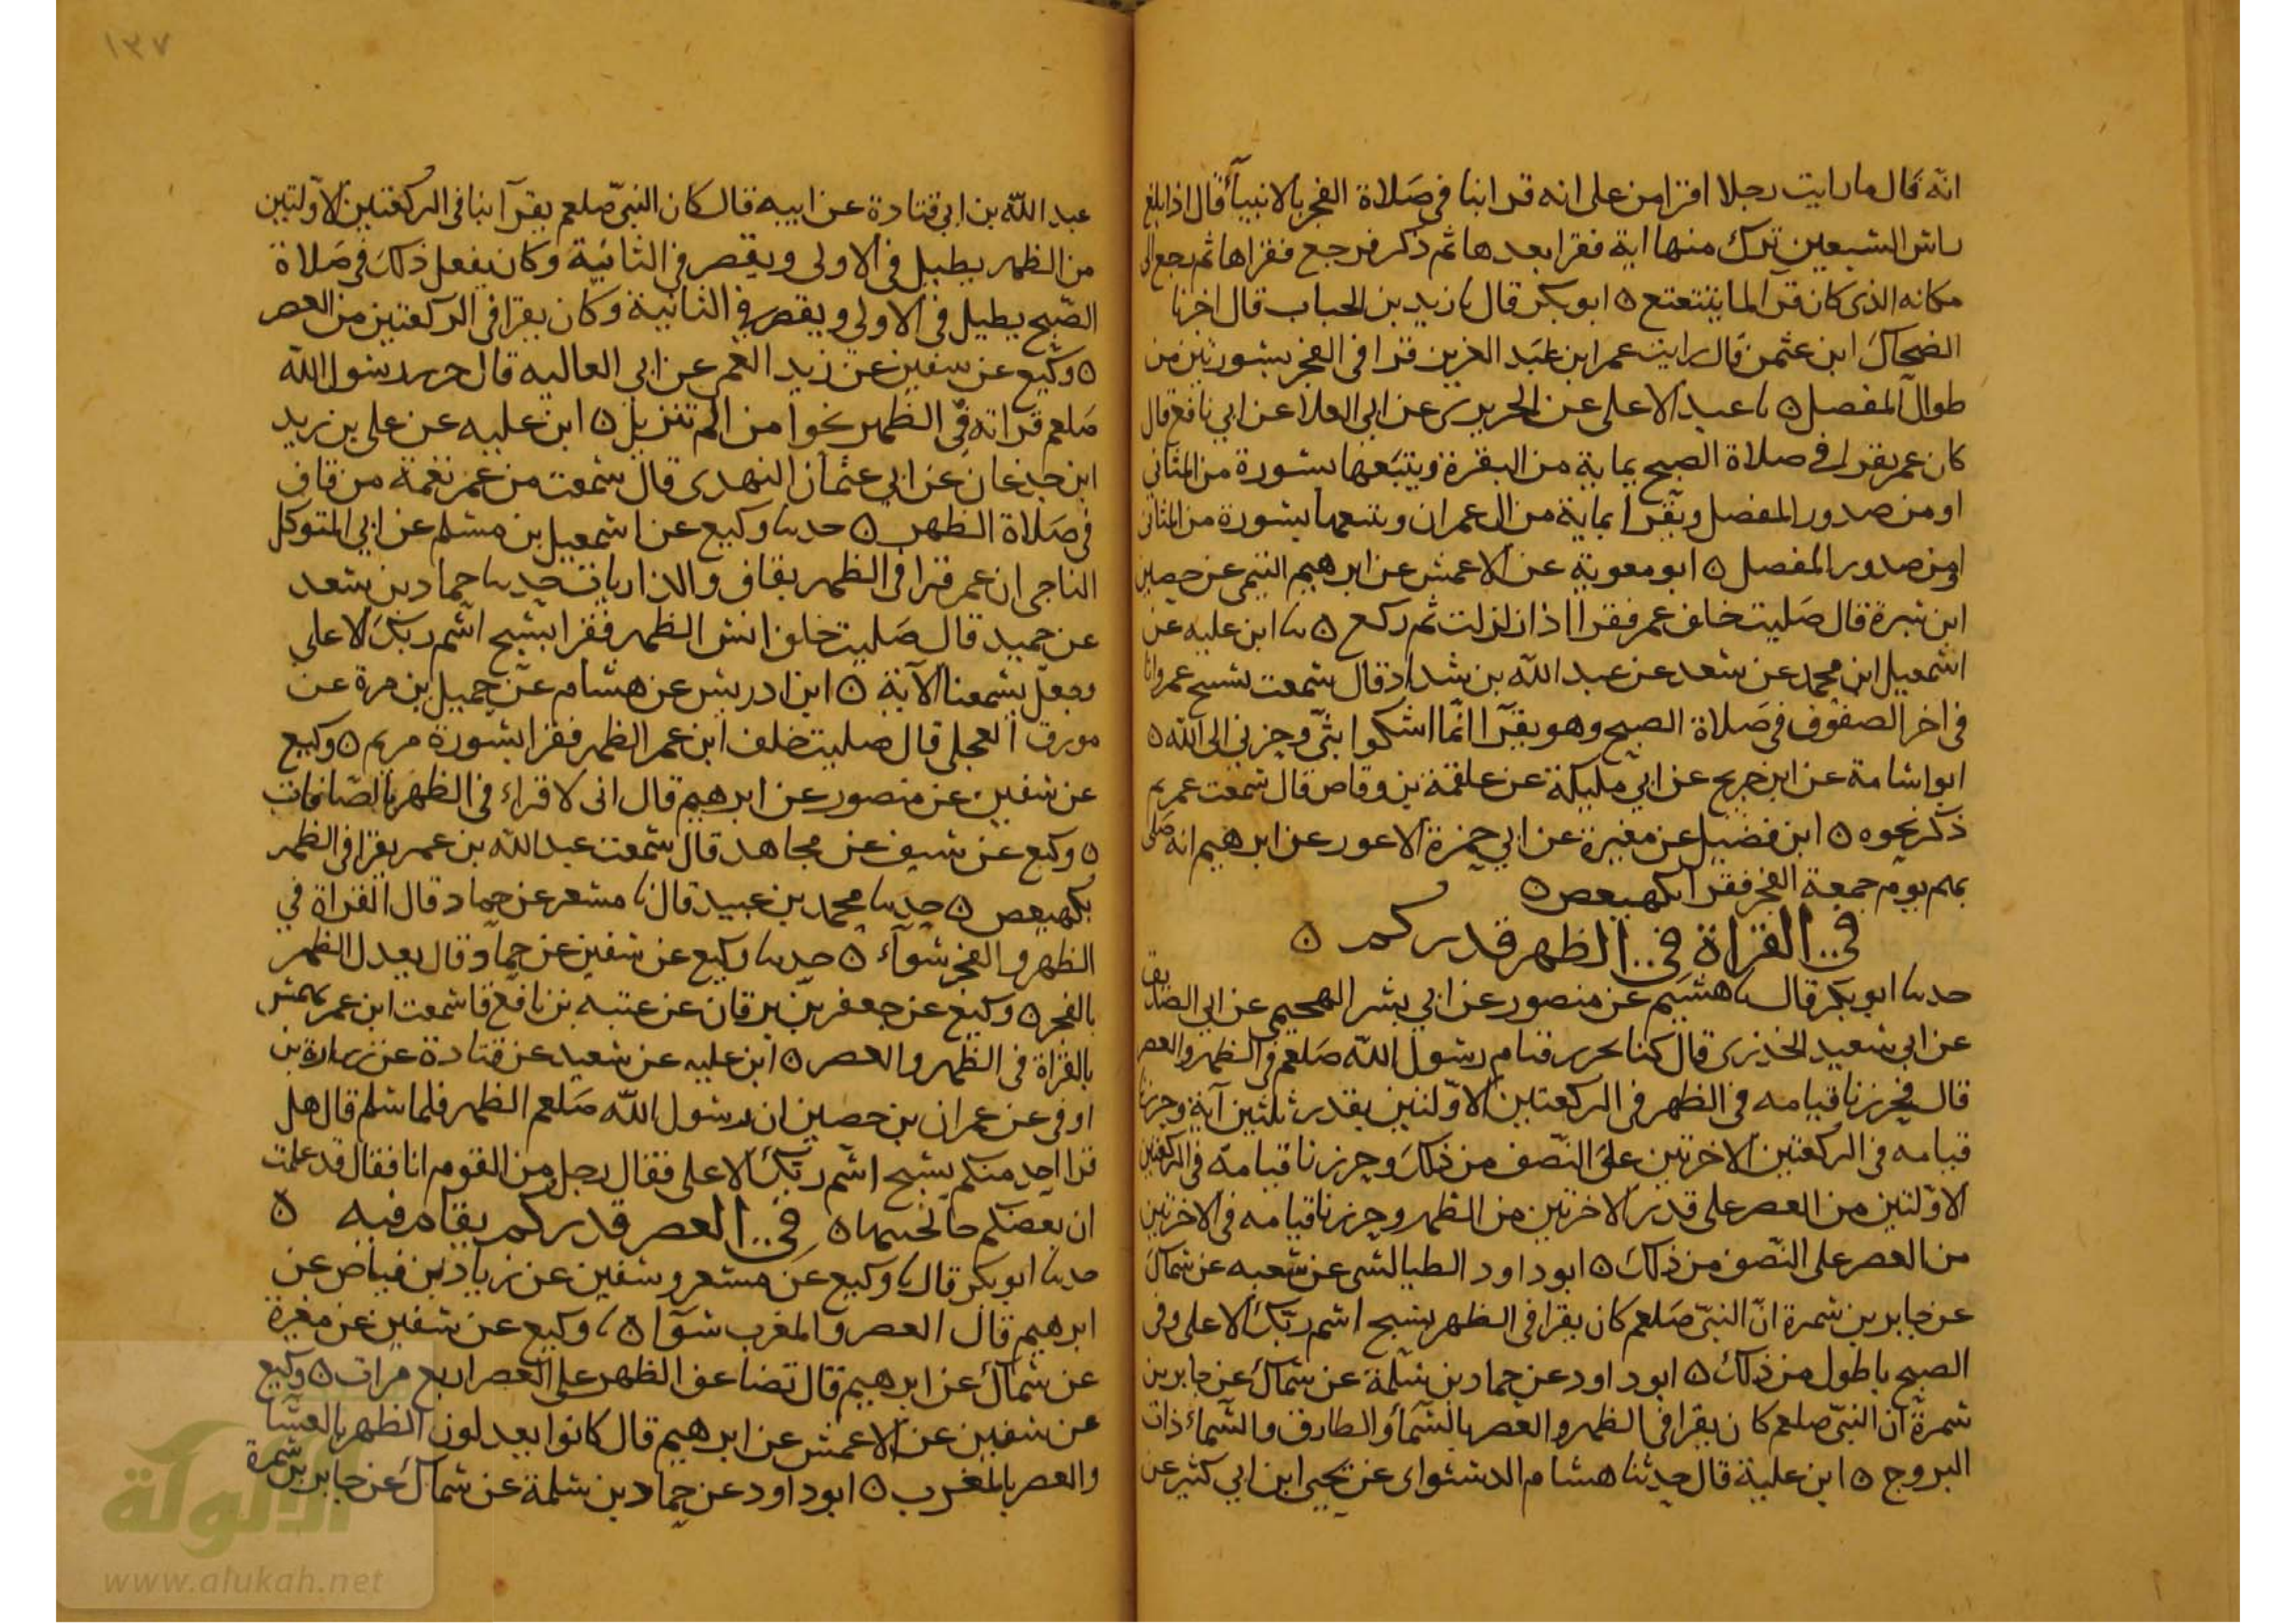 انّه قال ما رايت رجلا اقرا من على انه قرا بنا فى صَلاة الفجر بالانبياء قال اذا بلغ
راس السبعين ترك منها اية فقرا بعدها ثم ذكر فرجع فقراها ثم رجع الى
مكانه الذى كان قرا لما يتتعتع ٥ ابو بكر قال نا زيد بن الحباب قال اخبرنا
الضحاك ابن عثمن قال رايت عمر ابن عبد العزيز قرا فى الفجر بسورتين من
طوال المفصل ٥ نا عبد الاعلى عن الجريرى عن ابى العلا عن ابى نافع قال
كان عمر يقرا فى صلاة الصبح بماية من البقرة ويتبعها بسورة من المثانى
او من صدور المفصل ويقرا بماية من ال عمران ويتبعها بسورة من المثانى
او من صدور المفصل ٥ ابو معوية عن الاعمش عن ابرهيم التيمى عن حصين
ابن سبرة قال صَليت خلف عمر فقرا اذا زلزلت ثم ركع ٥ نا ابن عليه عن
اسمعيل ابن محمد عن سعد عن عبد الله بن شداد قال سمعت نشيج عمر وانا
فى اخر الصفوف فى صَلاة الصبح وهو يقرا انّما اشكوا بثّى وحزنى الى الله ٥
ابو اسامة عن ابن جريج عن ابى مليكة عن علقمة بن وقاص قال سمعت عمر ثم
ذكر نحوه ٥ ابن فضيل عن مغيرة عن ابى حمزة الاعور عن ابرهيم انه صَلى
بهم يوم جمعة الفجر فقرا بكهيعص ٥
فى القراة فى الظهر قدر كم ٥
حدثنا ابو بكر قال نا هشيم عن منصور عن ابى بشر الهجيمى عن ابى الصديق
عن ابى سعيد الخدرى قال كنا نحزر قيام رسول الله صَلعم فى الظهر والعصر
قال فحزرنا قيامه فى الظهر فى الركعتين الاوّلتين بقدر ثلثين آية وحزرنا
قيامه فى الركعتين الاخرتين على النّصف من ذلك وحزرنا قيامه فى الركعتين
الاوّلتين من العصر على قدر الاخرتين من الظهر وحزرنا قيامه فى الاخرتين
من العصر على النّصف من ذلك ٥ ابو داود الطيالسى عن شعبه عن سماك
عن جابر بن سمرة انّ النبىّ صَلعم كان يقرا فى الظهر بسبح اسم ربّك الاعلى وفى
الصبح باطول من ذلك ٥ ابو داود عن حماد بن سَلمة عن سماك عن جابر بن
سمرة ان النبىّ صلعم كان يقرا فى الظهر والعصر بالسّمآ والطارق والسّماء ذات
البروج ٥ ابن علية قال حدثنا هشام الدستواى عن يحيى ابن ابى كثير عن
١٣٧
عبد اللّه بن ابى قتادة عن ابيه قال كان النبىّ صلعم يقرآ بنا فى الركعتين الاوّلتين
من الظهر يطيل فى الاولى ويقصر فى الثانية وكان يفعل ذلك فى صَلاة
الصّبح يطيل فى الاولى ويقصر فى الثانية وكان يقرا فى الركعتين من العصر
٥ وكيع عن سفين عن زيد العمى عن ابى العاليه قال حزر رسول الله
صَلعم قراته فى الظهر نحوا من الم تنزيل ٥ ابن عليه عن على بن زيد
ابن جدعان عن ابى عثمان النهدى قال سمعت من عمر نغمة من قاف
فى صَلاة الظهر ٥ حدثنا وكيع عن اسمعيل بن مسلم عن ابى المتوكل
الناجى ان عمر قرا فى الظهر بقاف والذاريات حدثنا حماد بن سعد
عن حميد قال صَليت خلف انس الظهر فقرا بسبح اسم ربك الاعلى
وجعل يسمعنا الآية ٥ ابن ادريس عن هشام عن جميل بن مرة عن
مورق العجلى قال صليت خلف ابن عمر الظهر فقرا بسورة مريم ٥ وكيع
عن سفين عن منصور عن ابرهيم قال انى لاقراء فى الظهر بالصّافات
٥ وكيع عن سيف عن مجاهد قال سمعت عبد الله بن عمر يقرا فى الظهر
بكهيعص ٥ حدثنا محمد بن عبيد قال نا مسعر عن حماد قال القراة فى
الظهر والفجر سوآء ٥ حدثنا وكيع عن سفين عن حماد قال يعدل الظهر
بالفجر ٥ وكيع عن جعفر بن برقان عن عتبه بن نافع قا سمعت ابن عمر يهمس
بالقراة فى الظهر والعصر ٥ ابن عليه عن سعيد عن قتادة عن زرارة بن
اوفى عن عمران بن حصين ان رسول اللّه صَلعم الظهر فلما سلم قال هل
قرا احد منكم بسبح اسم ربّك الاعلى فقال رجل من القوم انا فقال قد علمت
ان بعضكم خالجنيها ٥ فى العصر قدر كم يقام فيه ٥
حدثنا ابو بكر قال نا وكيع عن مسعر وسفين عن زياد بن فياض عن
ابرهيم قال العصر والمغرب سَوآ ٥ نا وكيع عن سفين عن مغيرة
عن سماك عن ابرهيم قال تضاعف الظهر على العصر اربع مرات ٥ وكيع
عن سفين عن الاعمش عن ابرهيم قال كانوا يعدلون الظهر بالعشا
والعصر بالمغرب ٥ ابو داود عن حماد بن سلمة عن سماك عن جابر بن سمرة
الألوكة
www.alukah.net